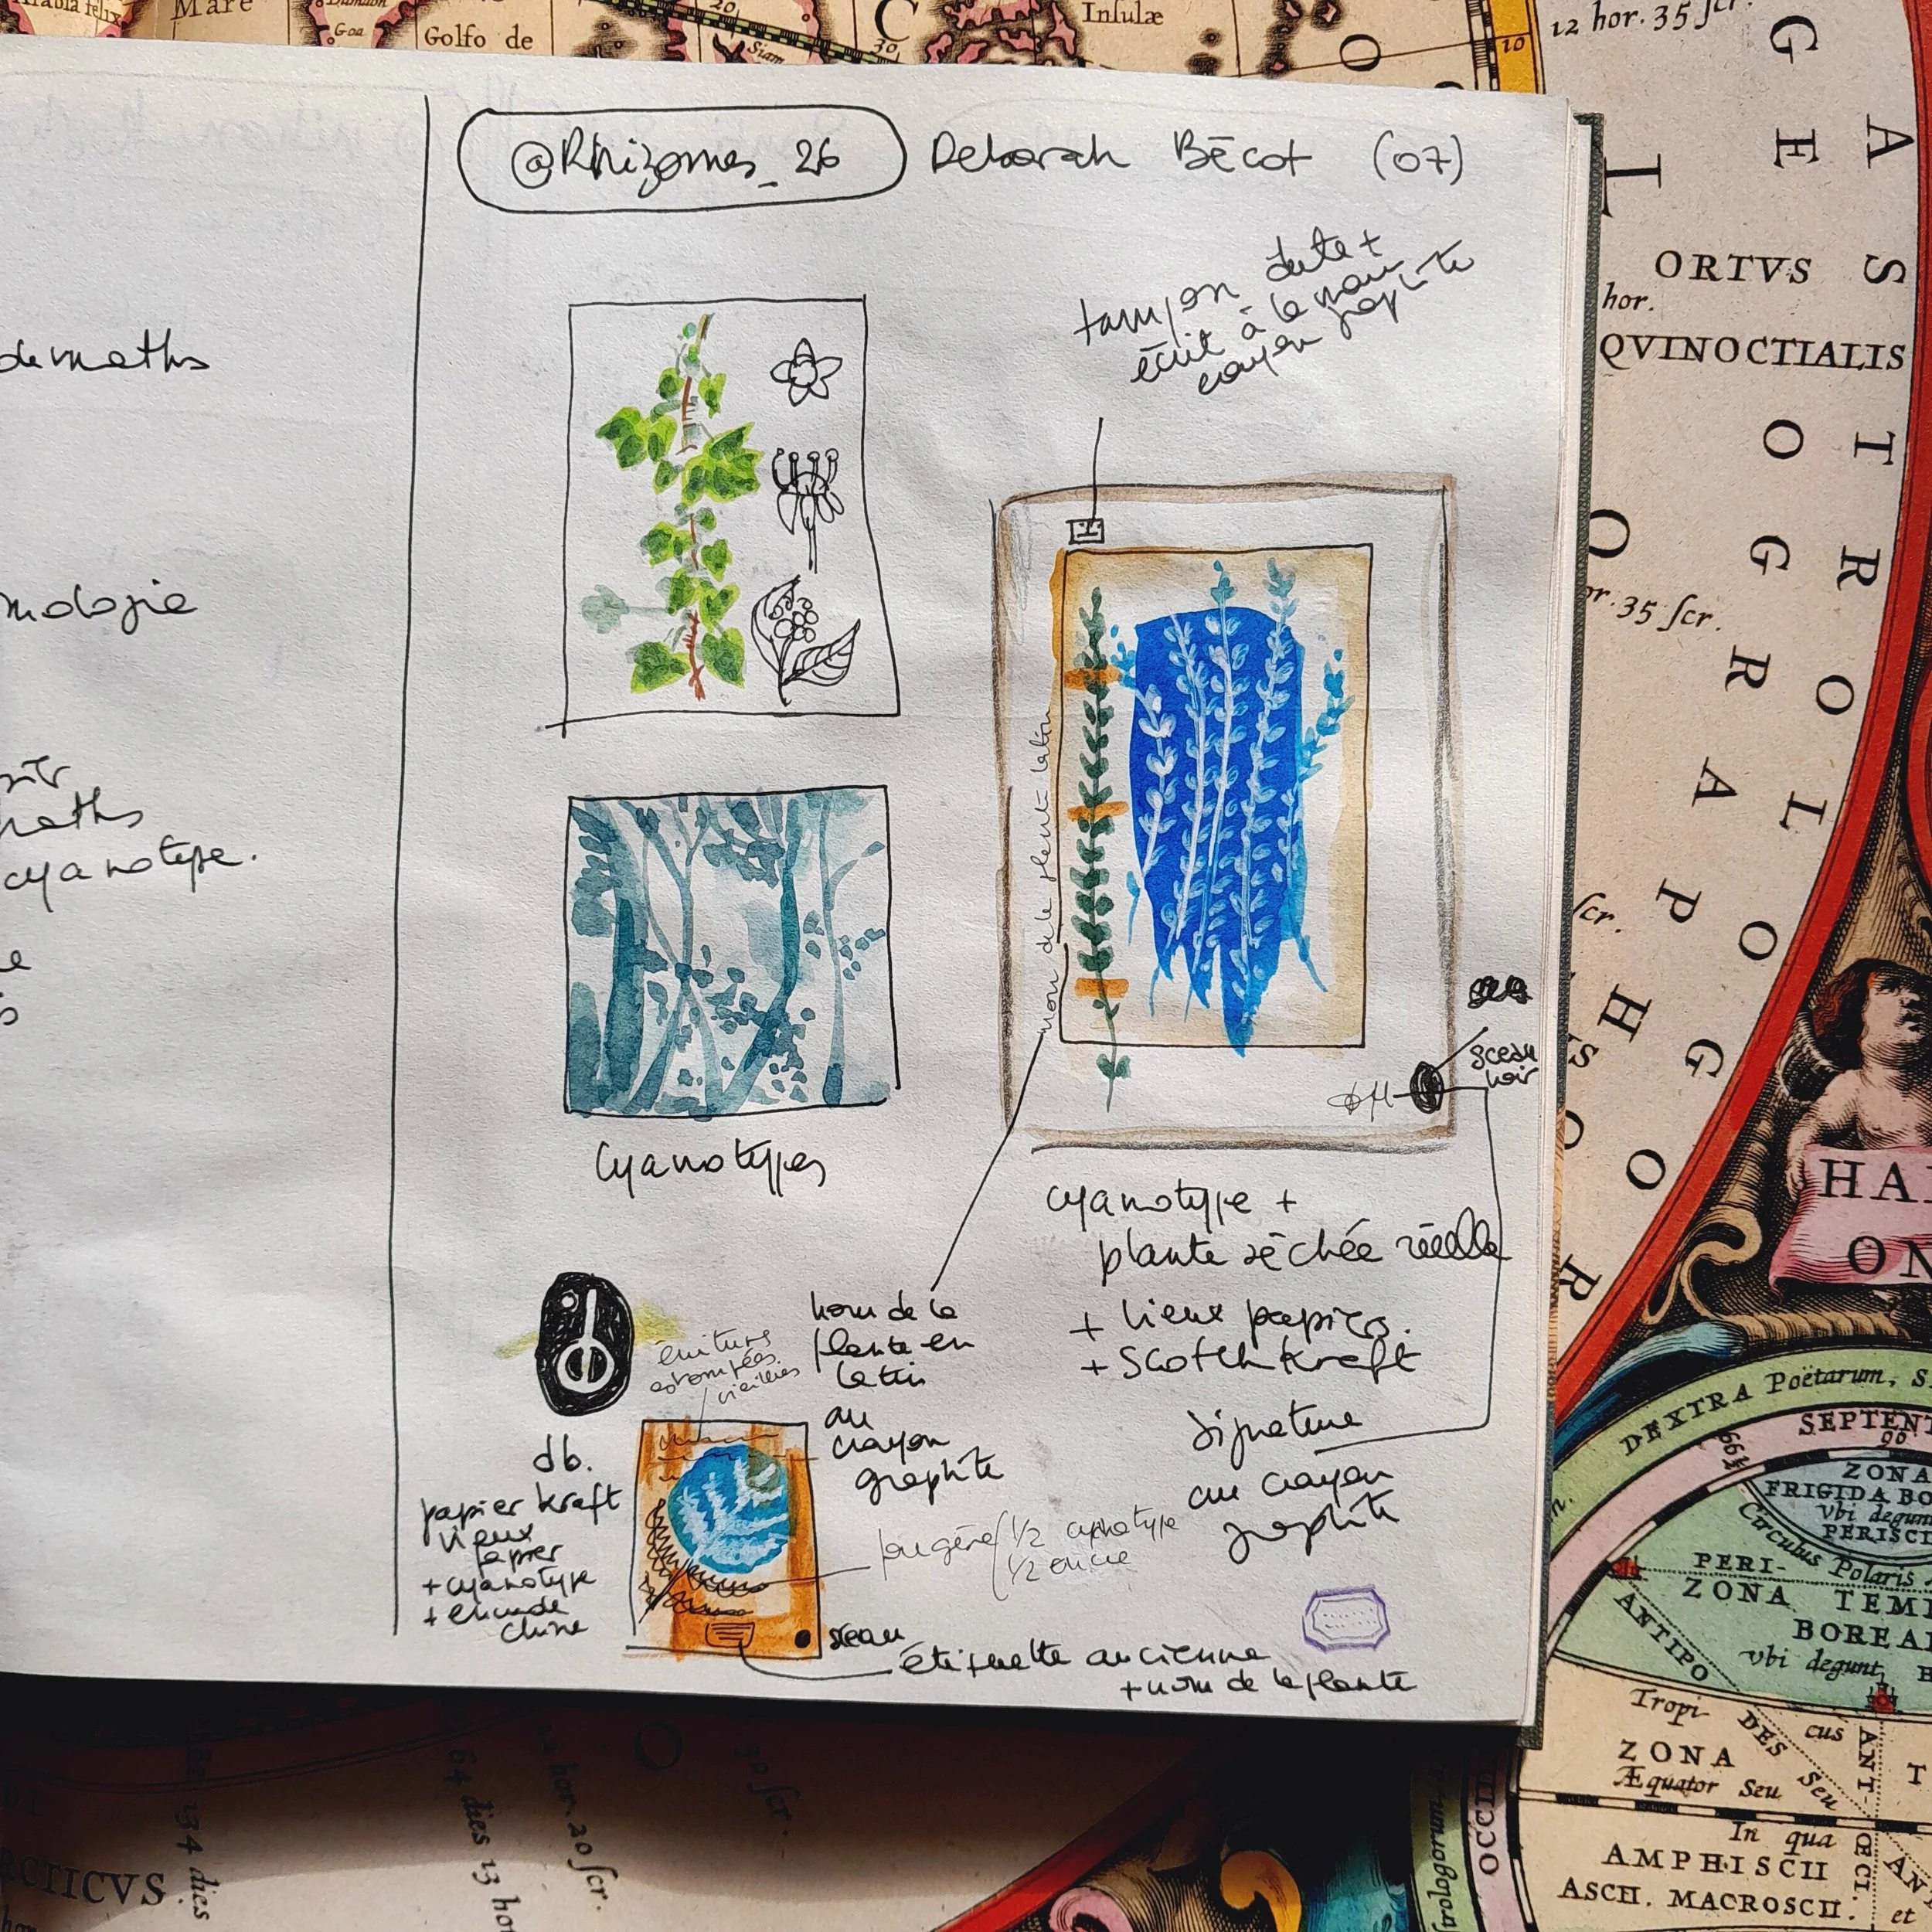 @Rhizomes_26 Deborah Bécot (07)
tampon date +
écrit à la main
crayon graphite
de maths
mologie
maths
cyanotype.
nom de la plante latin
sceau
noir
Cyanotypes
cyanotype +
plante séchée réelle
+ vieux papiers.
+ scotch kraft
signature
au crayon
graphite
nom de la
plante en
latin
au
crayon
graphite
écritures
estompées
vieillies
db.
papier kraft
vieux
papier
+ cyanotype
+ encre de
chine
fougère 1/2 cyanotype
1/2 encre
sceau
étiquette ancienne
+ nom de la plante
Mare
Goa
Golfo de
Siam
20
30
Insulæ
10
12 hor. 35 ſcr.
ORTVS
hor.
QVINOCTIALIS
35 ſcr.
ſcr.
ASTROLOGO
GEOGRAPHO
HA
ON
DEXTRA Poëtarum, S
SEPTENT
90
66
ZONA
FRIGIDA BO
vbi degun
PERISCI
Circulus Polaris
PERI-
ZONA TEM
BOREA
vbi degunt
ANTIPO
DES
Tropi
cus
ZONA
Æquator Seu
Seu
ANT-
ŒCI.
In qua
AMPHISCII
ASCII. MACROSCII.
et
OCCID
trologorum
RCTICVS
134 dies
64 dies 13 ho
hor. 20 ſcr.
30 ſcr.